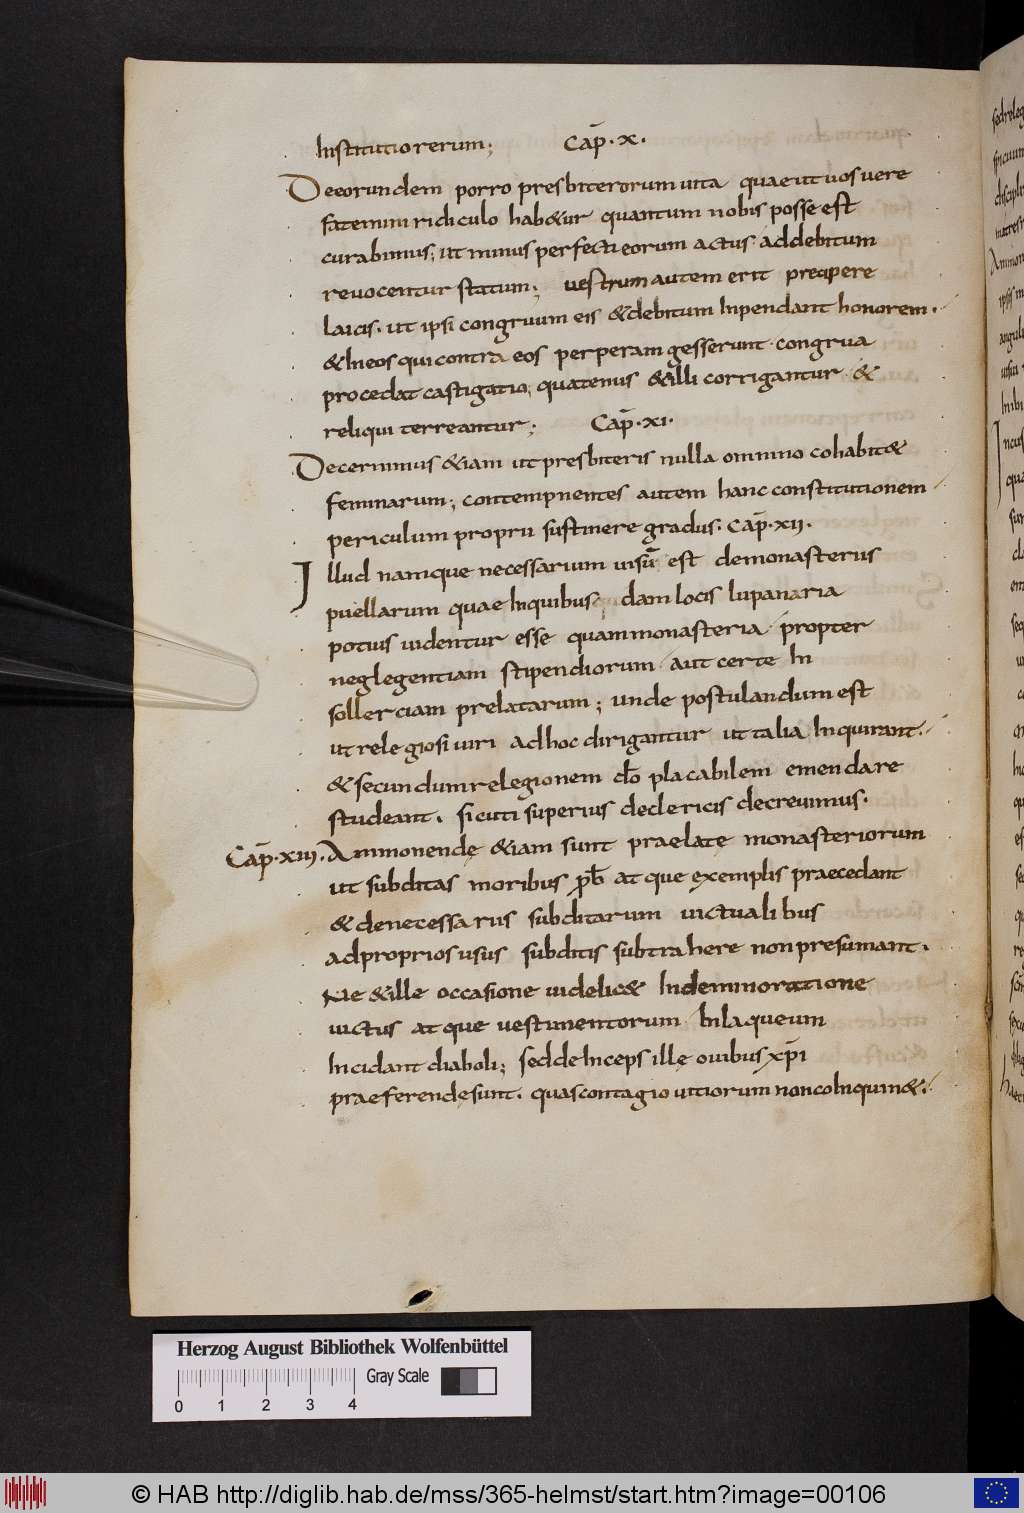 Institutiorerum; Cap̅.X.
De eorundem porro presbiterorum uita quae ut uos uere
fatemini ridiculo hab&ur quantum nobis posse est
curabimus; ut minus perfecti eorum actus addebitum
reuocentur statum; uestrum autem erit precipere
laicis. ut ipsi congruum eis &debitum Inpendant honorem.
&Ineos qui contra eos perperam gesserunt congrua
procedat castigatio; quatenus &illi corrigantur &
reliqui terreantur; Cap̅.XI.
Decernimus &iam ut presbiteris nulla omnino cohabit&
feminarum; contempnentes autem hanc constitutionem
periculum proprii sustinere gradus. Cap̅.XII.
Illud namque necessarium uisu̅ est demonasteriis
puellarum quae Inquibus dam locis lupanaria
potius uidentur esse quam monasteria propter
neglegentiam stipendiorum aut certe In
sollerciam prelatarum; unde postulandum est
ut relegiosi uiri adhoc dirigantur ut talia Inquirant.
&secundum relegionem do̅ placabilem emendare
studeant. sicuti superius declericis decreuimus.
Cap̅.XIII. Ammonendę &iam sunt praelate monasteriorum
ut subditas moribus p̅b̅ atque exemplis praecedant
&denecessariis subditarum uictualibus
adproprios usus subditis subtrahere non presumant.
Ne &ille occasione uidelic& Indemnioratione
uictus atque uestimentorum Inlaqueum
Incidant diaboli; sed deInceps illę ouibus xp̅i
praeferendę sunt. quas contagio uitiorum non coInquin&.
Herzog August Bibliothek Wolfenbüttel
Gray Scale
0 1 2 3 4
© HAB http://diglib.hab.de/mss/365-helmst/start.htm?image=00106